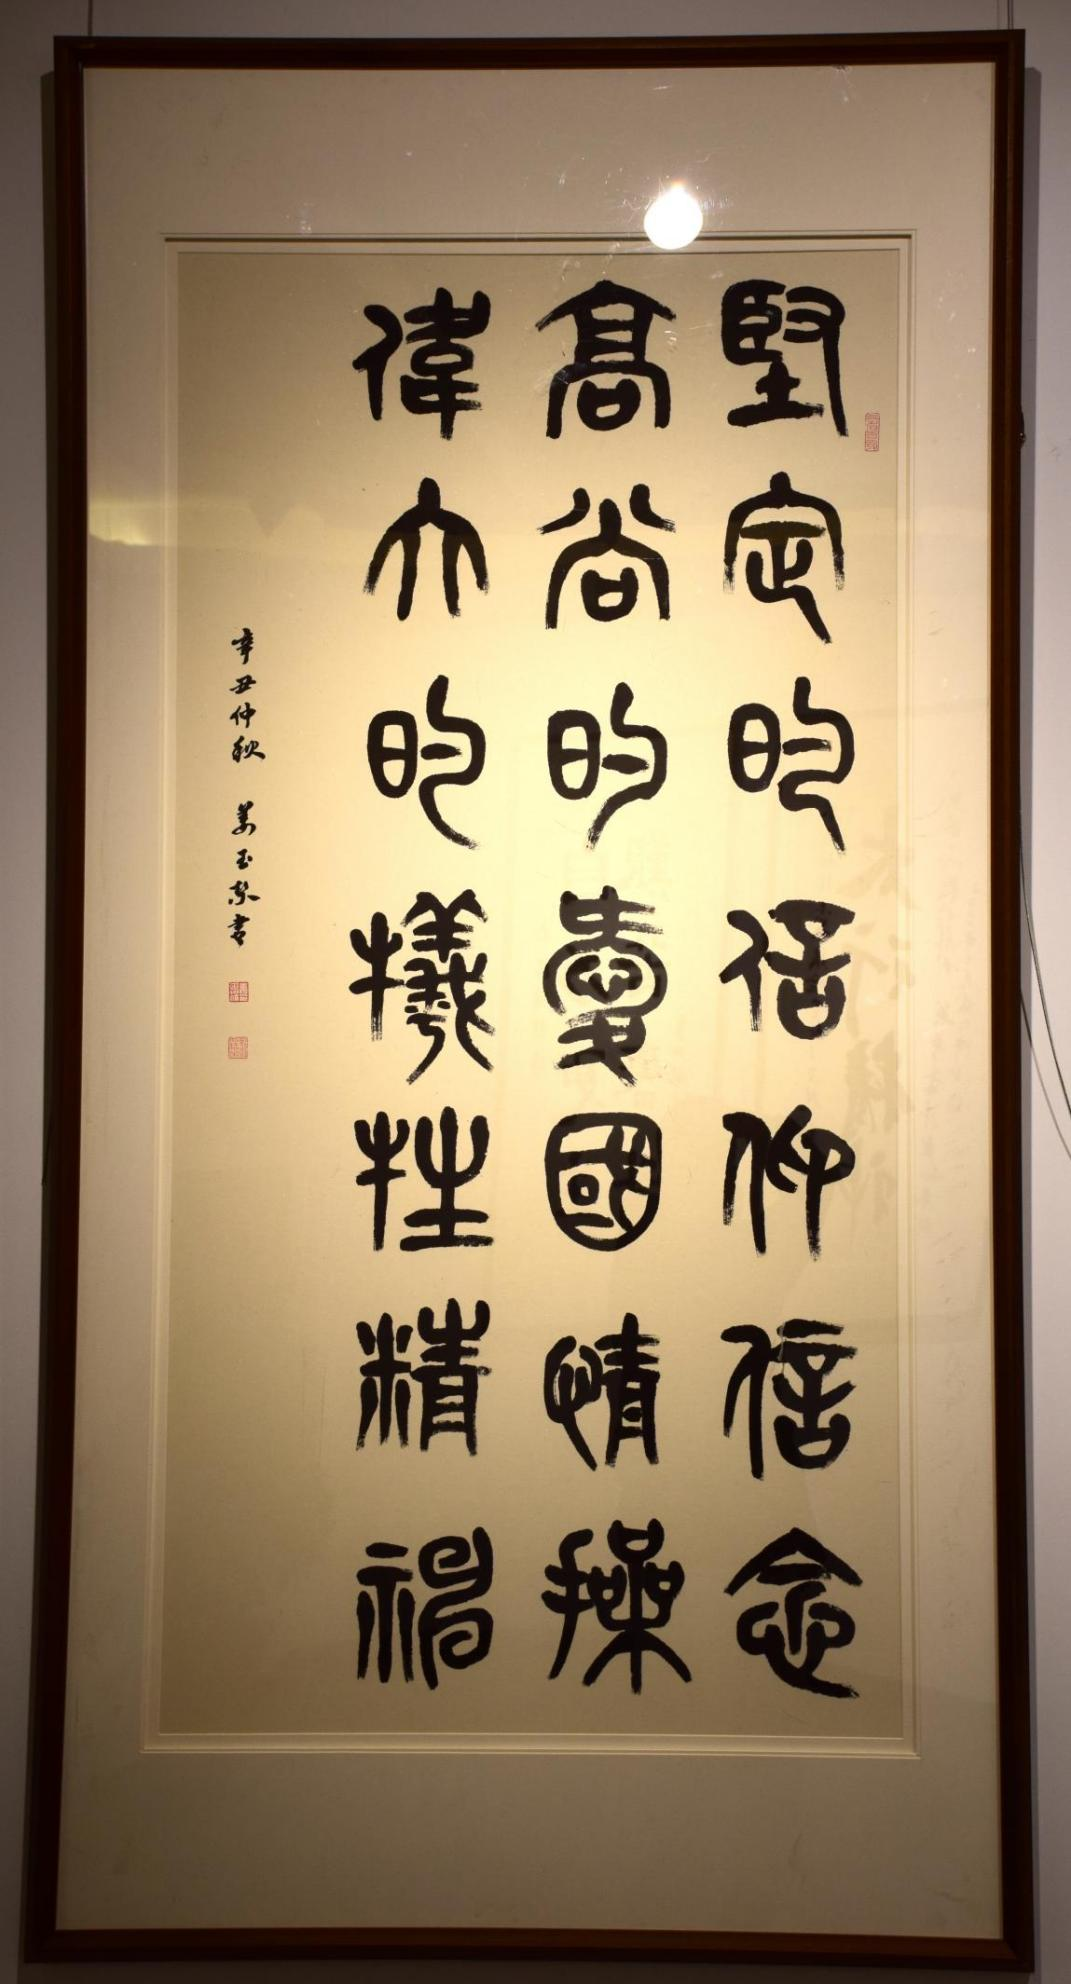 堅定的信仰信念
高尚的愛國情操
偉大的犧牲精神
辛丑仲秋 姜玉黎書